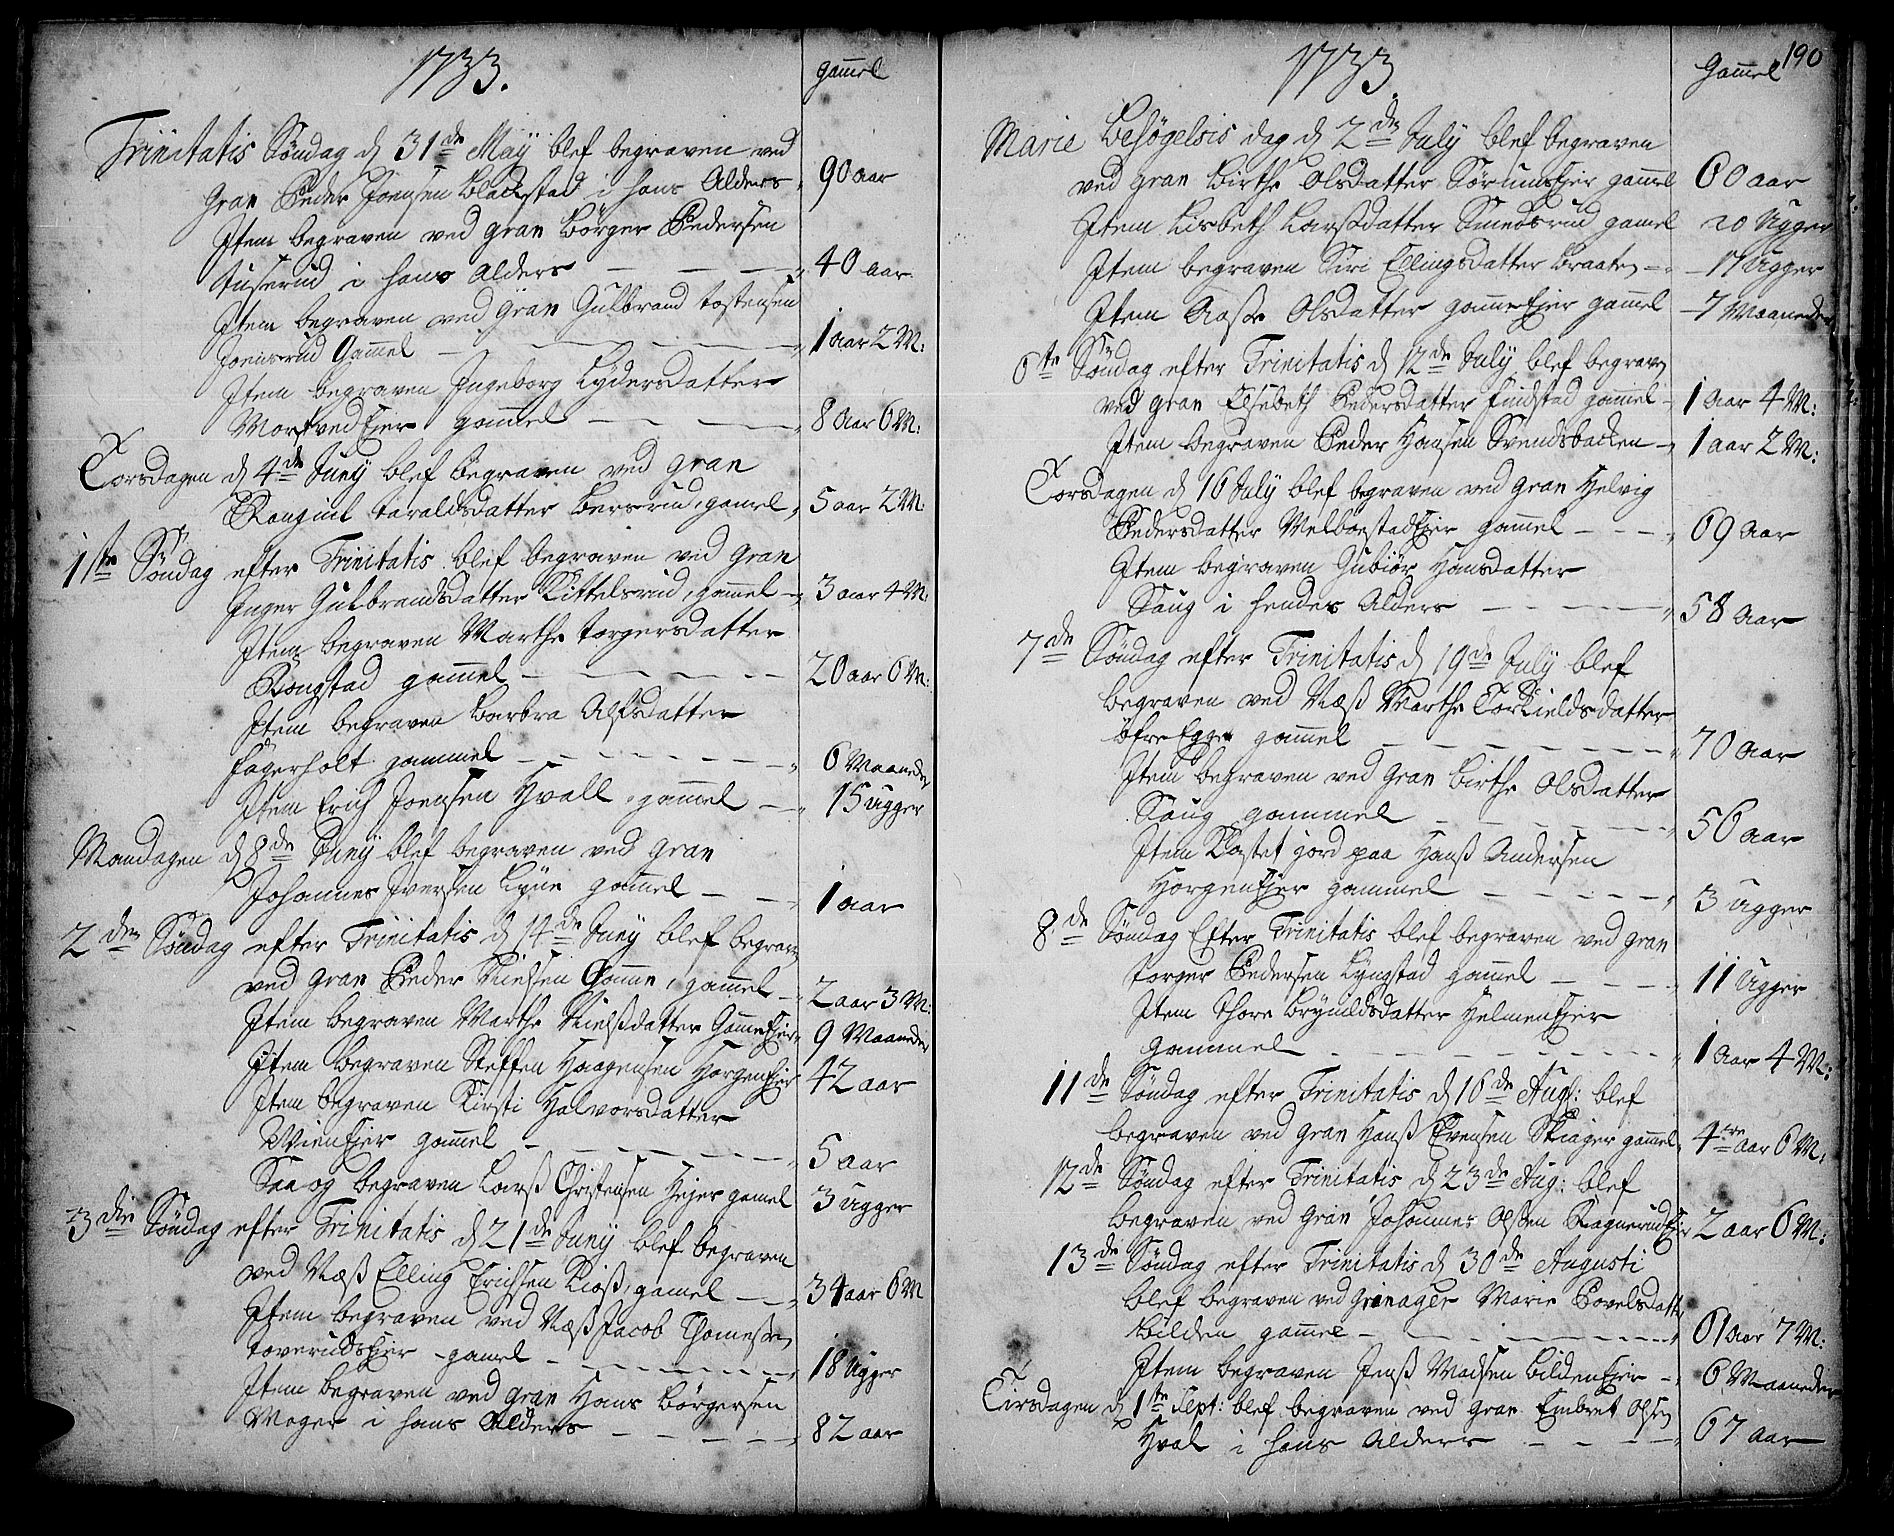 1733.
gam̄el
Trinitatis Søndag d 31de Maÿ blef begraven ved
Gran Peder Joensen Blackstad i hans Alders 90 aar
Item begraven ved gran Børger Pedersen
tuserud i hans Alders — — — 40 aar
Item begraven ved Gran Gulbrand tostensen
Joensrud Gam̄el — — — 1 aar 2 M:
Item begraven Ingeborg Lydersdatter
Morstved Eier gam̄el — — — 8 aar 6 M:
Torsdagen d 4de Junÿ blef begraven ved Gran
Rangnil taraldsdatter Bersrud, gam̄el, 5 aar 2 M:
1ste Søndag efter Trinitatis blef begraven ved Gran
Inger Gulbrandsdatter Kittelsrud, gam̄el — 3 aar 4 M:
Item begraven Marthe torgersdatter
Rongstad gam̄el — — — 20 aar 6 M:
Item begraven Barbra Alfsdatter
Fagerholt gammel — — — 6 Maaneder
Item Erich Joensen Hvall gam̄el — 15 ugger
Mandagen d 8de Junÿ blef begraven ved Gran
Johannes Iversen Lÿne gam̄el — — 1 aar
2den Søndag efter Trinitatis d 14de Junÿ blef begrav̄
ved Gran Peder Nielsen Gamme, gam̄el — 2 aar 3 M:
Item begraven Marthe Nielsdatter Gam̄eEjer 9 Maaneder
Item begraven Steffen Haagensen HorgenEjer 42 aar
Item begraven Kirsti Halvorsdatter
WienEjer gam̄el — — — 5 aar
Saa og begraven Larß Christensen Hejer gam̄el 3 ugger
3die Søndag efter Trinitatis d 21de Junÿ blef begraven
ved Næß Elling Erichsen Kioß, gam̄el — 34 aar 6 M
Item begraven ved Næß Jacob Thomeßen
toverudsEjer gam̄el — — — 18 Ugger
Item begraven ved Gran Hans Børgersen
Moger i hans Alders — — — 82 aar
1733.
Gam̄el 190
Marie Besøgelsis dag d 2den Julÿ blef begraven
ved Gran Birthe Olsdatter SørumsEjer gam̄el 60 aar
Item Lisbeth Larßdatter Smedsrud gam̄el 20 Ugger
Item begraven Siri Ellingsdatter Braaten — 17 Ugger
Item Aaße Olsdatter gam̄eEjer gam̄el — 7 Maaneder
6te Søndag efter Trinitatis d 12de Julÿ blef begrav̄
ved Gran Elsebeth Pedersdatter Findstad gam̄el — 1 aar 4 M:
Item begraven Peder Hansen Svendsbacken — 1 aar 2 M:
Torsdagen d 16 Julÿ blef begraven ved Gran Helvig
Pedersdatter MelboestadEjer gam̄el — — — 69 aar
Item begraven Gubiør Hansdatter
Saug i hendes Alders — — — 58 aar
7de Søndag efter Trinitatis d 19de Julÿ blef
begraven ved Næß Marthe Torkieldsdatter
øfre Egge gam̄el — — — 70 aar
Item begraven ved Gran Birthe Olsdatter
Saug gammel — — — 56 aar
Item Kastet jord paa Hanß Andersen
HorgenEjer gammel — — — 3 ugger
8de Søndag Efter Trinitatis blef begraven ved Gran
torger Pedersen Lyngstad gam̄el — — — 11 Ugger
Item Thore Brynildsdatter HelmenEjer
gammel — — — 1 aar 4 M:
11de Søndag efter Trinitatis d 16de Aug: blef
begraven ved Gran Hanß Evensen Skiager gam̄el, 4re aar 6 M:
12de Søndag efter Trinitatis d 23de Aug: blef
begraven ved Gran Johannes Olßen RagnerudEjer 2 aar 6 M:
13de Søndag efter Trinitatis d 30de Augusti
blef begraven ved Granager Marie Povelsdatt
Bilden gam̄el — — — 61 aar 7 M:
Item begraven Jenß Madsen BildenEjer — 6 Maaneder
Tirsdagen d 1ste Sept: blef begraven ved Gran Embret Olsen
Hval i hans Alders — — — 67 aar